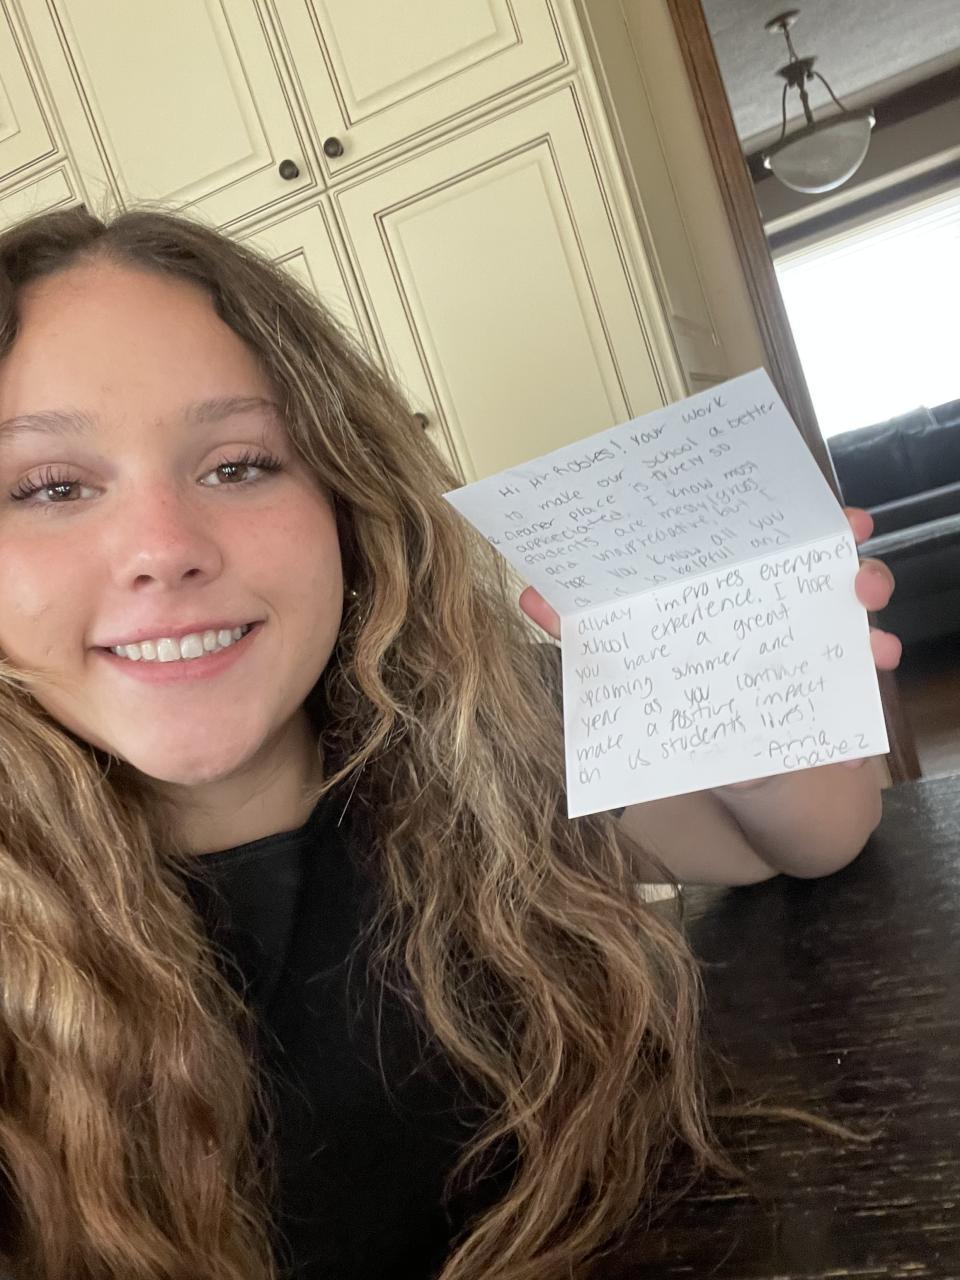 Hi Mr. Robles! Your work
to make our school a better
& cleaner place is truely so
appreciated. I know most
students are messy/gross
and unappreciative, but I
hope you know all you
do is so helpful and
alway improves everyone's
school experience. I hope
you have a great
upcoming summer and
year as you continue to
make a positive impact
on us students lives!
-Anna
Chavez